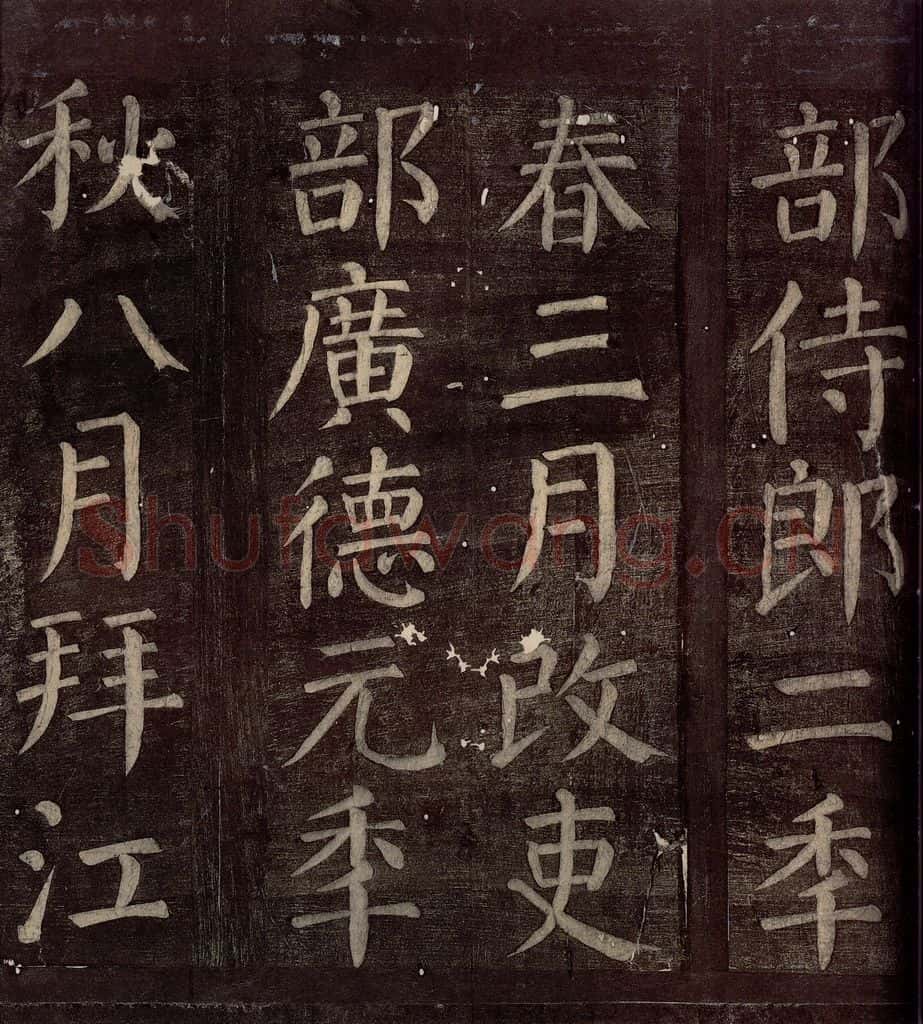 部侍郎二秊
春三月改吏
部廣德元秊
秋八月拜江
Shufawang.CN